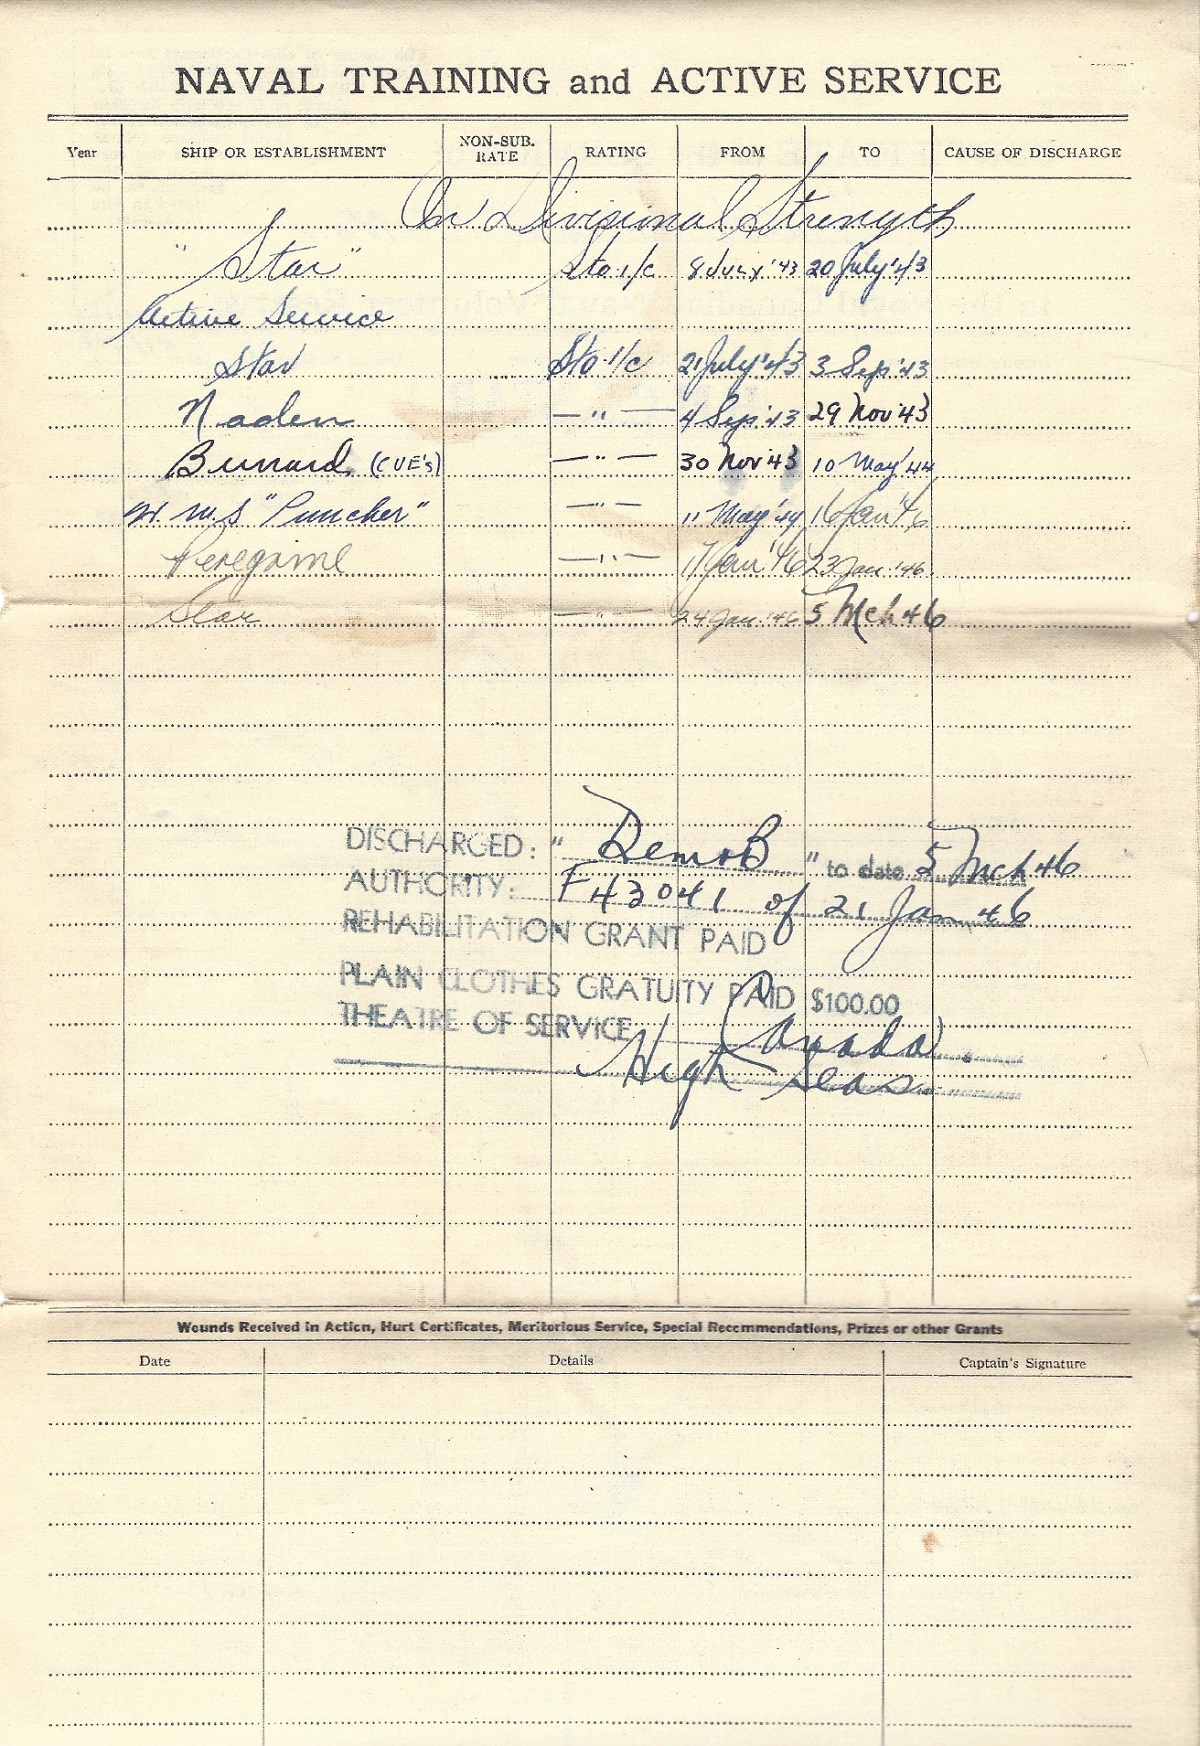 NAVAL TRAINING and ACTIVE SERVICE
Year SHIP OR ESTABLISHMENT NON-SUB. RATE RATING FROM TO CAUSE OF DISCHARGE
On Divisional Strength
"Star" Sto 1/c 8 July '43 20 July '43
Active Service
Star Sto 1/c 21 July '43 3 Sep '43
Naden — " — 4 Sep '43 29 Nov '43
Burrard (CVE's) — " — 30 Nov '43 10 May '44
H.M.S "Puncher" — " — 11 May '44 16 Jan '46
Peregrine — " — 17 Jan '46 23 Jan '46
Star — " — 24 Jan '46 5 Mch 46
DISCHARGED: "DemoB" to date 5 Mch 46
AUTHORITY: F43041 of 21 Jan 46
REHABILITATION GRANT PAID
PLAIN CLOTHES GRATUITY PAID $100.00
THEATRE OF SERVICE Canada.
High Seas
Wounds Received in Action, Hurt Certificates, Meritorious Service, Special Recommendations, Prizes or other Grants
Date Details Captain's Signature